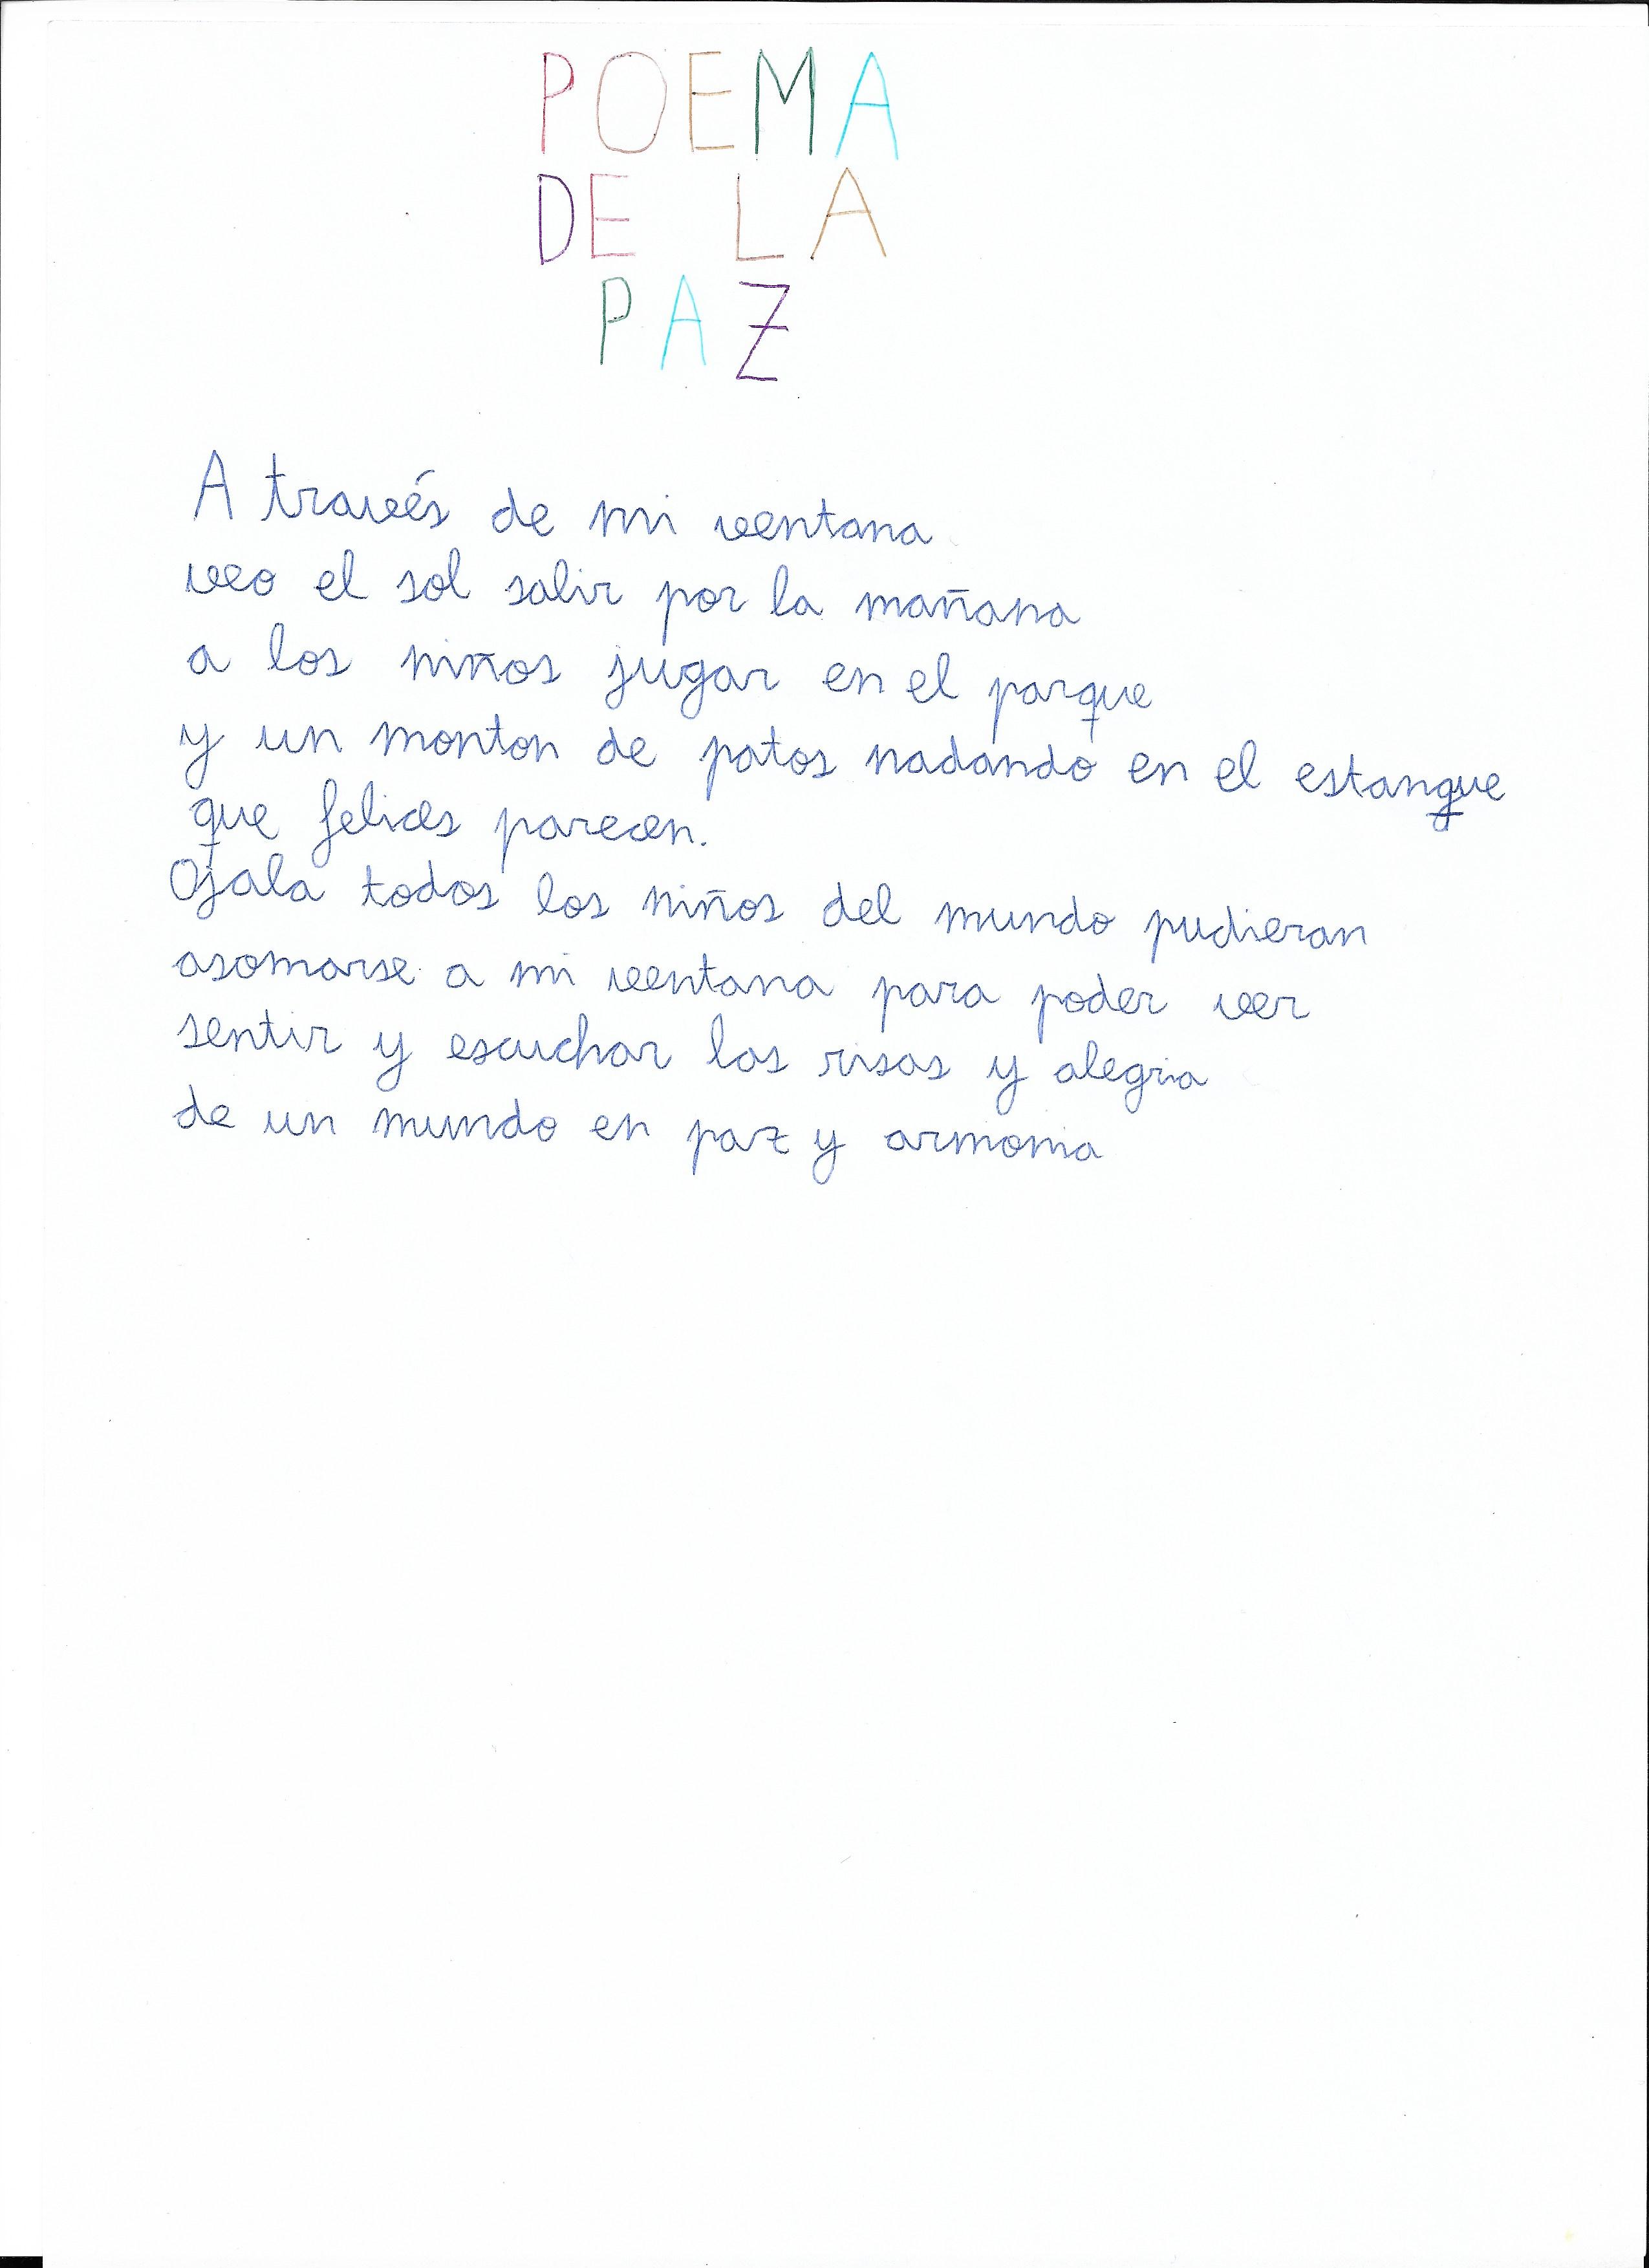 POEMA
DE LA
PAZ
A través de mi ventana
veo el sol salir por la mañana
a los niños jugar en el parque
y un monton de patos nadando en el estanque
que felices parecen.
Ojala todos los niños del mundo pudieran
asomarse a mi ventana para poder ver
sentir y escuchar las risas y alegria
de un mundo en paz y armonia